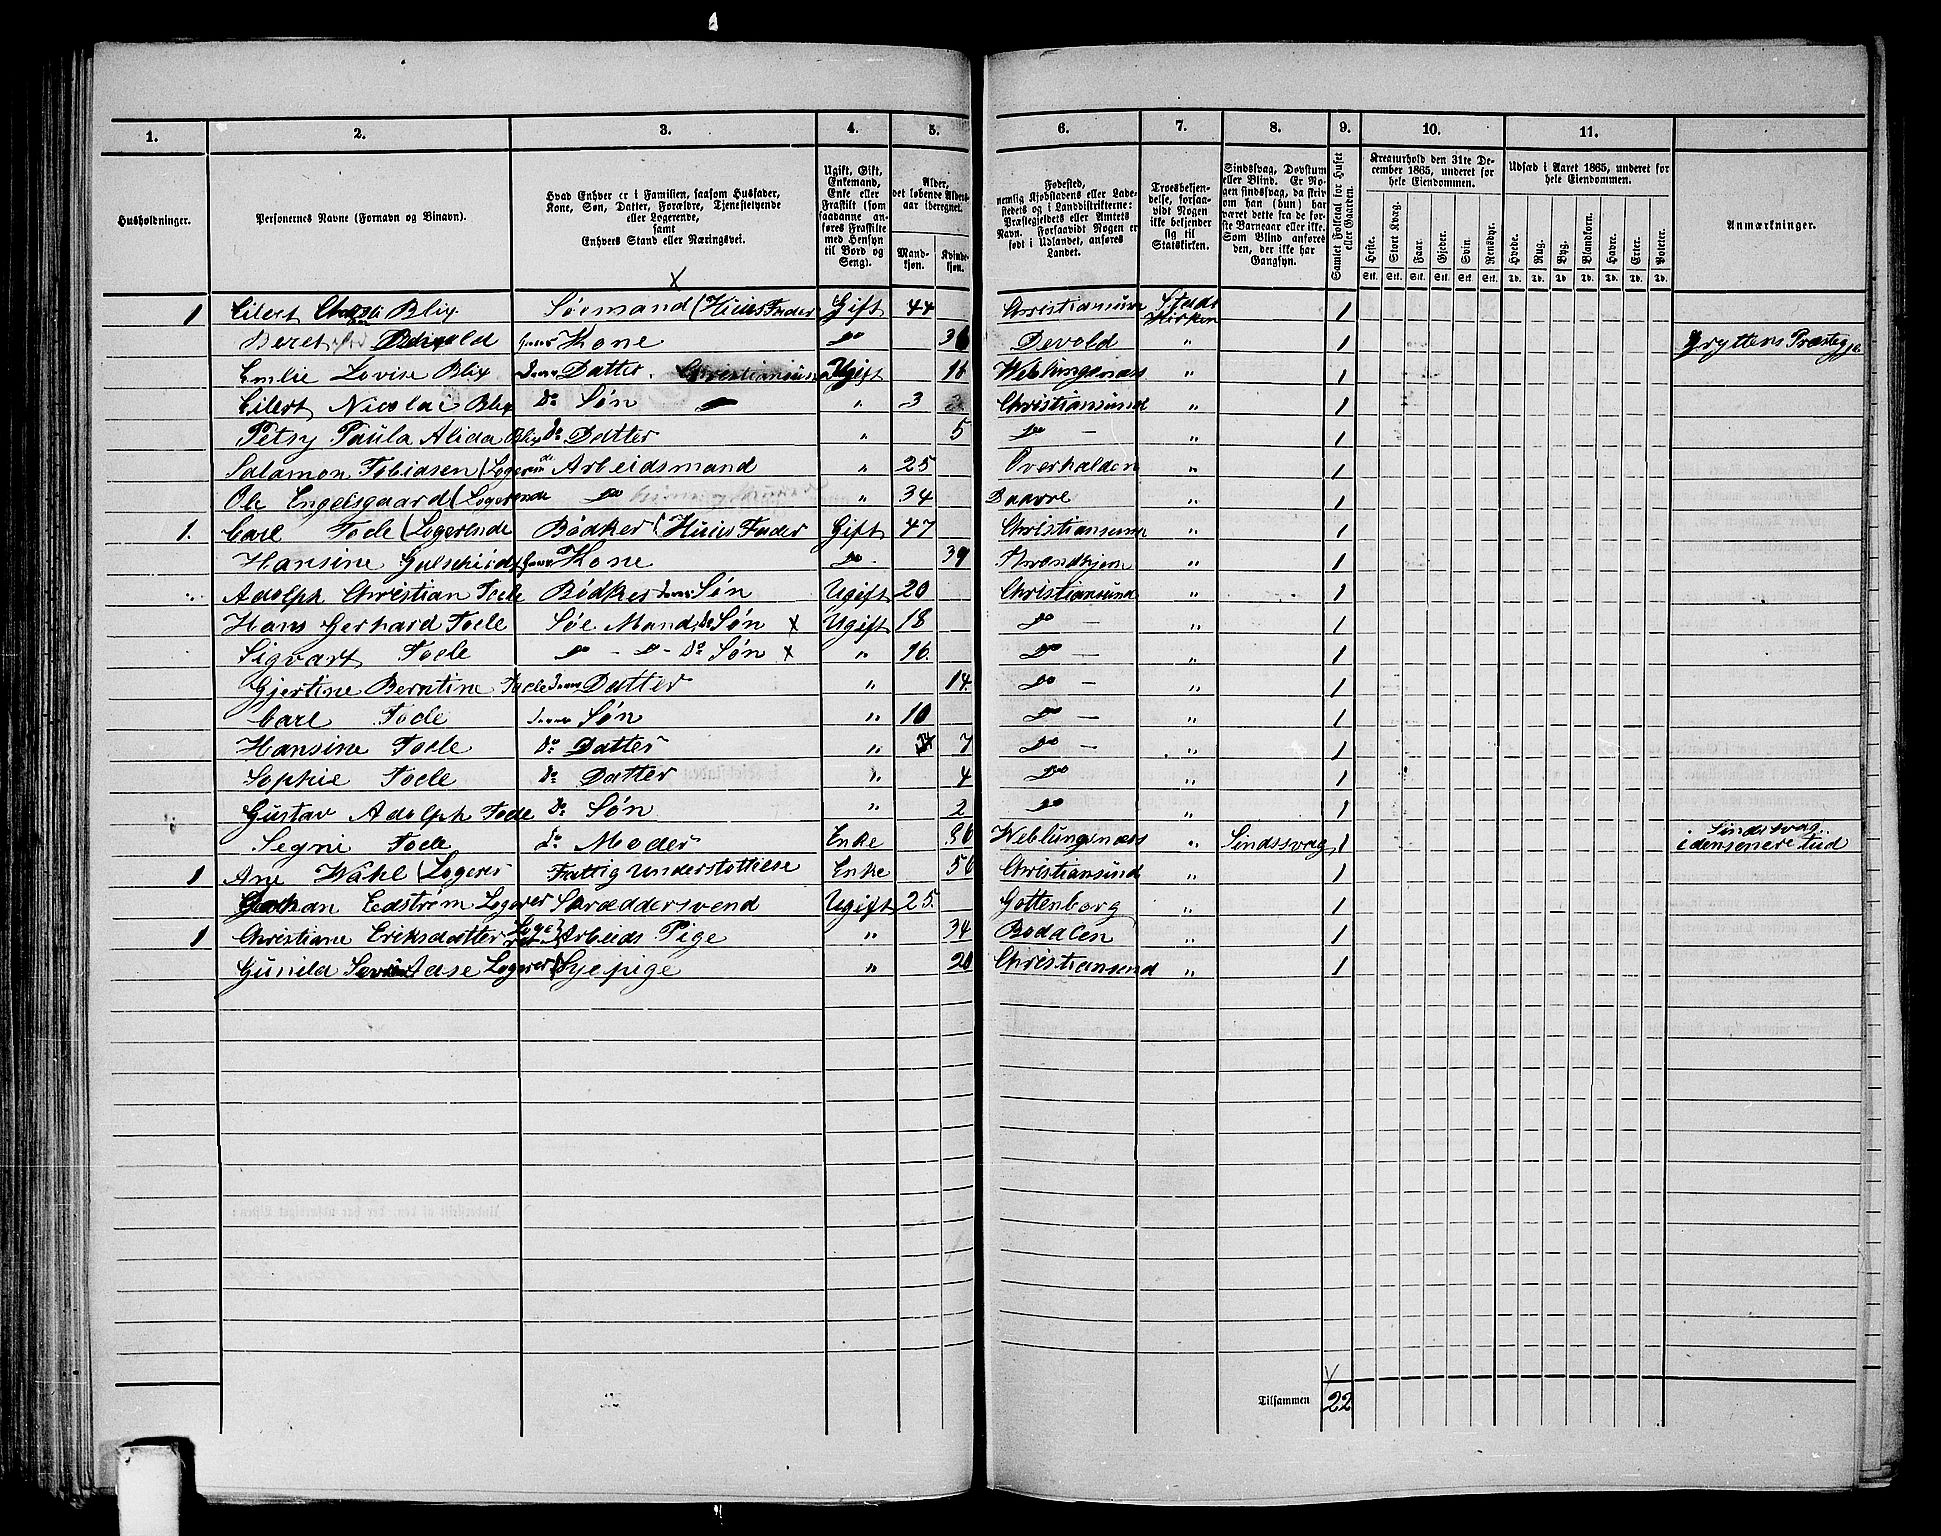 1. 2. 3. 4. 5. 6. 7. 8. 9. 10. 11.
Husholdninger.
Personernes Navne (Fornavn og Binavn).
Hvad Enhver er i Familien, saasom Husfader, Kone, Søn, Datter, Forældre, Tjenestetyende eller Logerende, samt Enhvers Stand eller Næringsvei.
Ugift, Gift, Enkemand, Enke eller Fraskilt (som saadanne anføres Fraskilte med Hensyn til Bord og Seng).
Alder, det løbende Alders-aar iberegnet.
Mandkjøn. Kvindekjøn.
Fødested, nemlig Kjøbstadens eller Ladestedets og i Landdistrikterne: Præstegjeldets eller Amtets Navn. Forsaavidt Nogen er født i Udlandet, anføres Landet.
Troesbekjendelse, forsaavidt Nogen ikke bekjender sig til Statskirken.
Sindssvag, Døvstum eller Blind. Er Nogen sindssvag, da skriv om han (hun) har været dette fra de første Barneaar eller ikke. Som Blind anføres den, der ikke har Gangsyn.
Samlet Folketal for Huset eller Gaarden.
Kreaturhold den 31te December 1865, underet for hele Eiendommen.
Heste. Stort Kvæg. Faar. Gjeder. Svin. Rensdyr.
Stk. Stk. Stk. Stk. Stk. Stk.
Udsæd i Aaret 1865, underet for hele Eiendommen.
Hvede. Rug. Byg. Blandkorn. Havre. Erter. Poteter.
Td. Td. Td. Td. Td. Td. Td.
Anmærkninger.
1 Eilert Blix Søemand (Huus Fader Gift 44 Christiansund Stads Kirken 1
Beret hans Kone do Devold " 1 Gryttens Præstegj.
Emlie Lovise Blix deres Datter. Ugift 16 Weblungsnæs " 1
Eilert Nicolai Blix do Søn " 3 Christiansund " 1
Petsy Paula Alida Blix do Datter " 5 do — " 1
Salamon Tobiasen (Logerende Arbeidsmand " 25 Overhalden " 1
Ole Engelsgaard (Logerende do " 34 " 1
1. Carl Tode (Logerende Bødker (Huus Fader Gift 47 Christiansund " 1
Hansine hans Kone do 39 Trondhjem " 1
Adolph Christian Tode Bødker deres Søn Ugift 20 Christiansund " 1
Hans Gerhard Tode Søe Mand do Søn x Ugift 18 do — " 1
Sigvart Tode do - do - do Søn x " 16. do — " 1
Gjertine Berntine Tode deres Datter " 14. do — " 1
Carl Tode deres Søn " 10 do — " 1
Hansine Tode do Datter " 7 do — " 1
Sophie Tode do Datter " 4 do — " 1
Gustav Adolph Tode do Søn " 2 do " 1
Segni Tode do Moder Enke Weblungsnæs " Sindssvag 1 Sindssvag. i den senere tid
1 Ane Wahl (Logerer Fattig Understøttelse Enke 56 Christiansund " 1
Johan Edstrøm Logerer Skræddersvend Ugift 25. Gottenborg " 1
1 Christiane Eriksdatter Logerer Arbeids Pige " 34 Bodalen " 1
Gunild Aase Logerer Syepige " 20 Christiansund " 1
Tilsammen 22